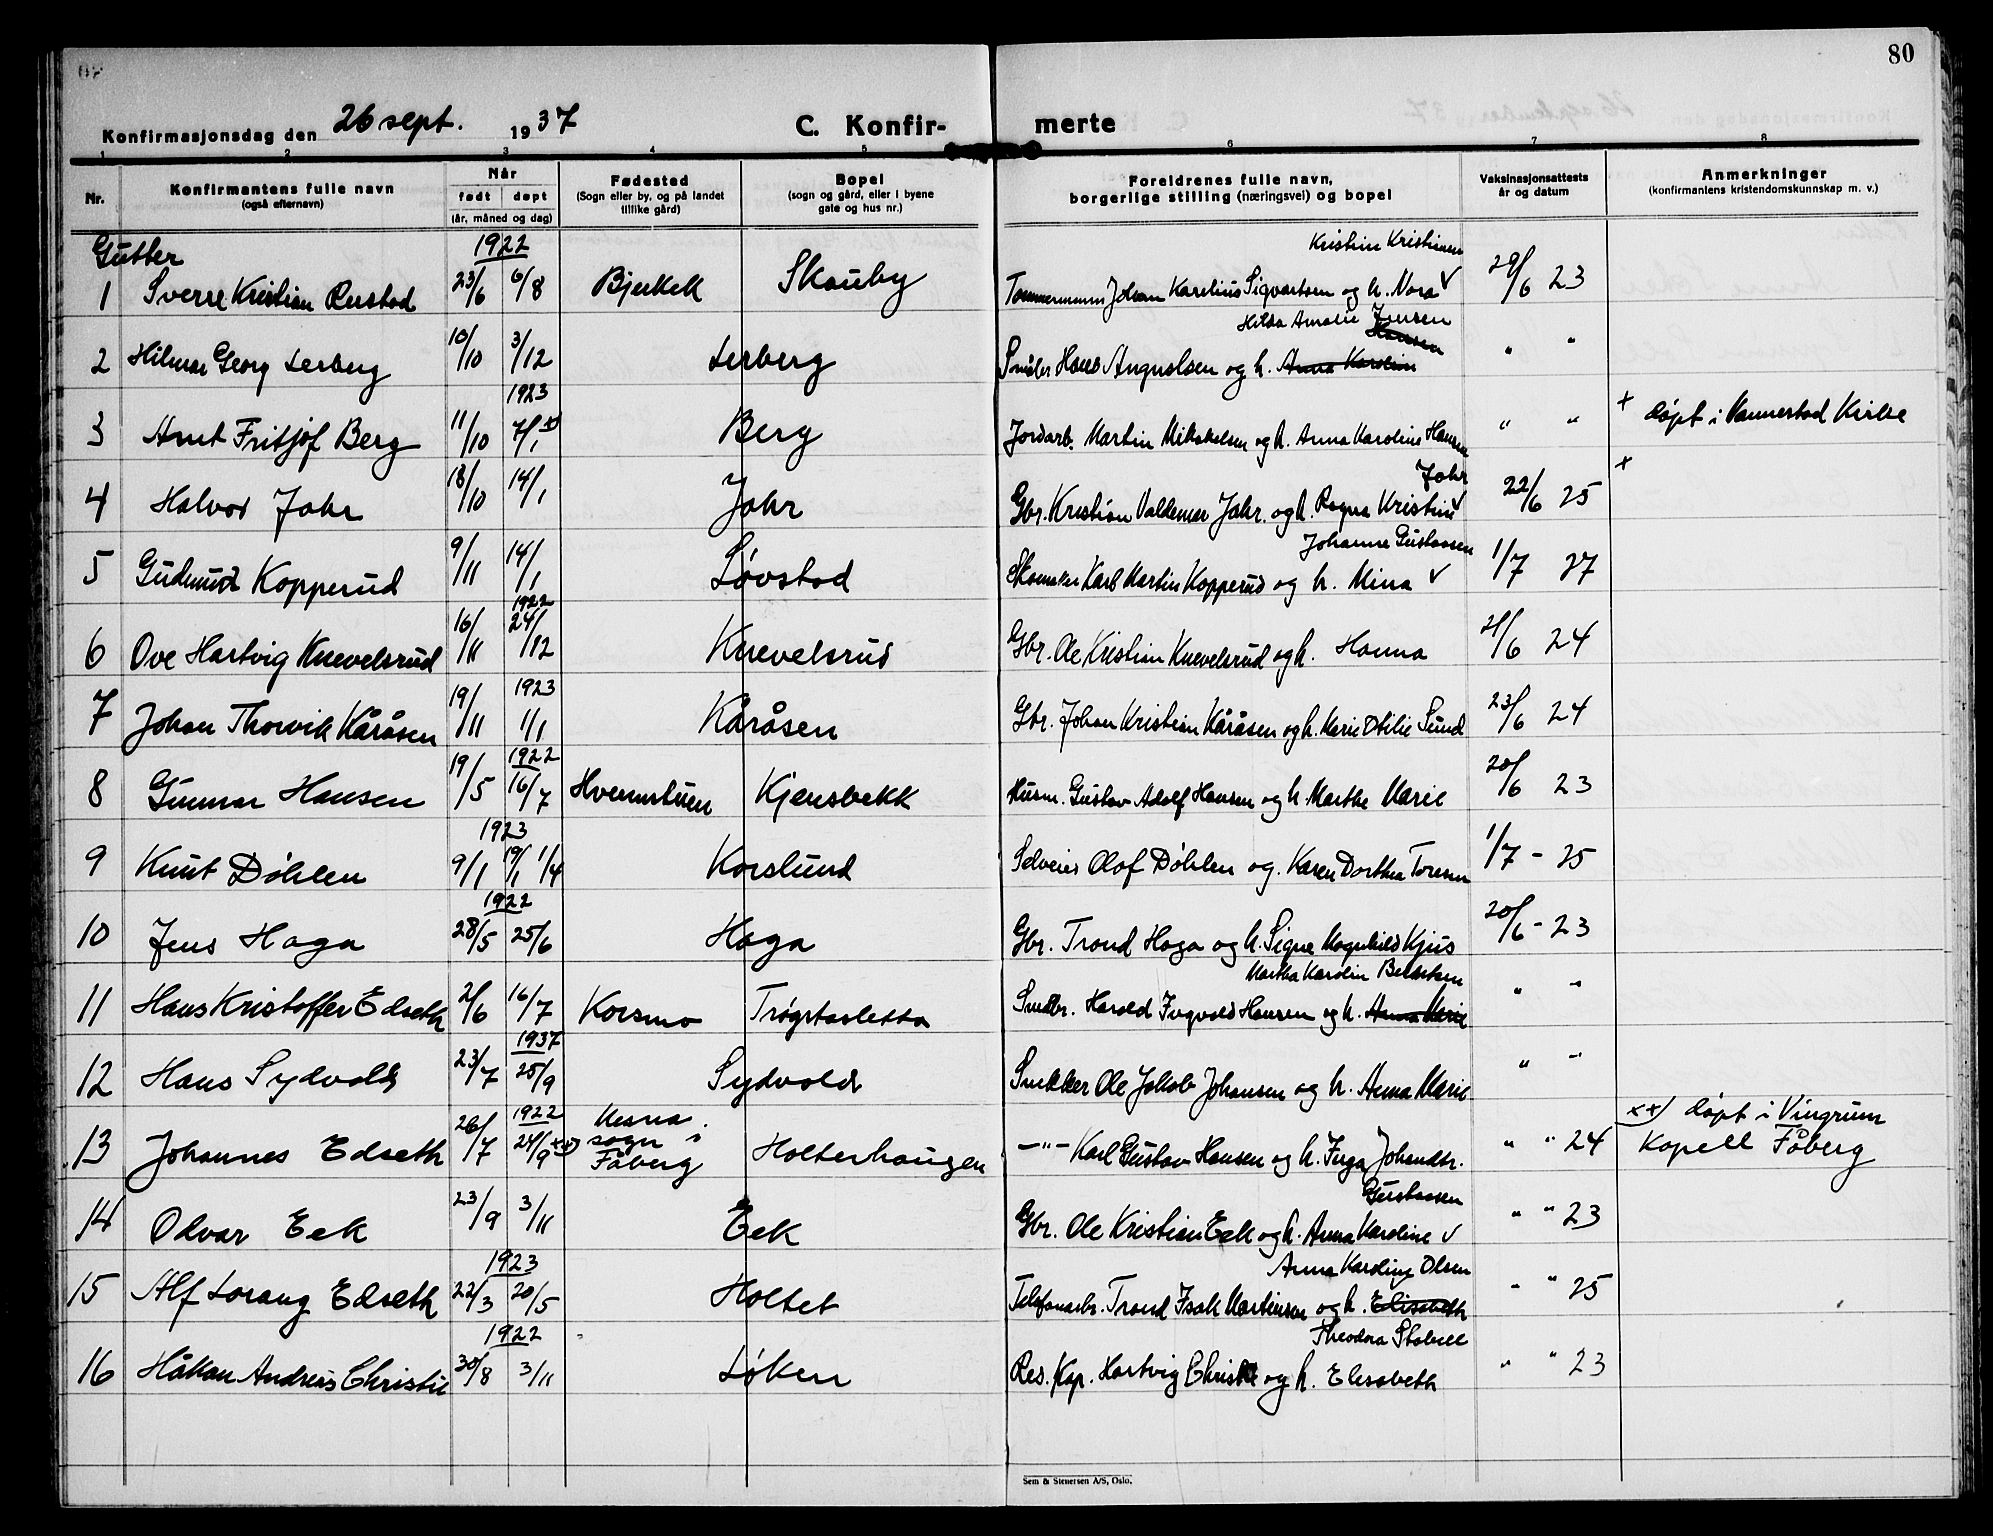 80
Konfirmasjonsdag den 26 sept. 1937 C. Konfir- merte
1 2 3 4 5 6 7 8
Nr. Konfirmantens fulle navn (også efternavn) Når født døpt (år, måned og dag) Fødested (Sogn eller by, og på landet tillike gård) Bopel (sogn og gård, eller i byene gate og hus nr.) Foreldrenes fulle navn, borgerlige stilling (næringsvei) og bopel Vaksinasjonsattests år og datum Anmerkninger (konfirmantens kristendomskunnskap m. v.)
Gutter 1922 Kristine Kristiansen
1 Sverre Kristian Rustad 23/6 6/8 Bjerkek Skauby Tømmermann Johan Karelius Sigvartsen og h. Nora √ 29/6 23
Hilda Amalie Jensen
2 Hilmar Georg Lerberg 10/10 3/12 Lerberg Hans Augustsen og h. Anna Karoline Hansen " "
1923
3 Arnt Fritjof Berg 11/10 7/1 x) Berg Jordarb. Martin Mikkelsen og h. Anna Karoline Hansen " " + døpt i Vannerstad Kirke
Jahr +
4 Halvor Jahr 18/10 14/1 Jahr Gbr. Kristian Valdemar Jahr. og h. Ragna Kristine √ 22/6 25
Johanne Gustavsen
5 Gudmund Kopperud 9/11 14/1 Løvstad Skomaker Karl Martin Kopperud og h. Mina √ 1/7 27
1922
6 Ove Hartvig Knevelsrud 16/11 24/12 Knevelsrud Gbr. Ole Kristian Knevelsrud og h. Hanna 21/6 24
1923
7 Johan Thorvik Kåråsen 19/11 1/1 Kåråsen Gbr. Johan Kristian Kåråsen og h. Marie Otilie Sund 23/6 24
1922
8 Gunnar Hansen 19/5 16/7 Hvermstuen Kjensbekk Husm. Gustav Adolf Hansen og h. Marthe Marie 20/6 23
1923
9 Knut Døhlen 9/1 19/1 1/4 Korslund Selveier Olaf Døhlen og. Karen Dorthea Toresen 1/7 - 25
1922
10 Jens Haga 28/5 25/6 Haga Gbr. Trond Haga og h. Signe Magnhild Kjus 20/6 - 23
Martha Karolin Berntsen
11 Hans Kristoffer Edseth 2/6 16/7 Korsmo Trøgstadsletta Smedbr. Harald Ingvald Hansen og h. Anna Marie " "
1937
12 Hans Sydvold 23/7 25/9 Sydvold Snekker Ole Jakob Johansen og h. Anna Marie " "
1922
13 Johannes Edseth 26/7 24/9 xx) sogn i Fåberg Holterhaugen —"— Karl Gustav Hansen og h. Inga Johandtr. " " 24 xx) døpt i Vingrum Kapell Fåberg
Gustavsen
14 Odvar Eek 23/9 3/11 Eek Gbr. Ole Kristian Eek og h. Anna Karoline √ " " 23
1923 Anna Karoline Olsen
15 Alf Lorang Edseth 22/3 20/5 Holtet Telefonarbr. Trond Isak Martinsen og h. Elisabeth " " 25
1922 Theodora Stabell
16 Håkon Andreas Christie 30/8 3/11 Løken Res. Kap. Hartvig Christie og h. Elisabeth " " 23
Sem & Stenersen A/S, Oslo.